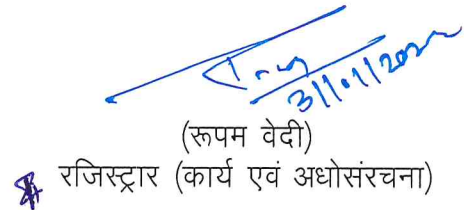 31/01/2022
(रूपम वेदी)
रजिस्ट्रार (कार्य एवं अधोसंरचना)